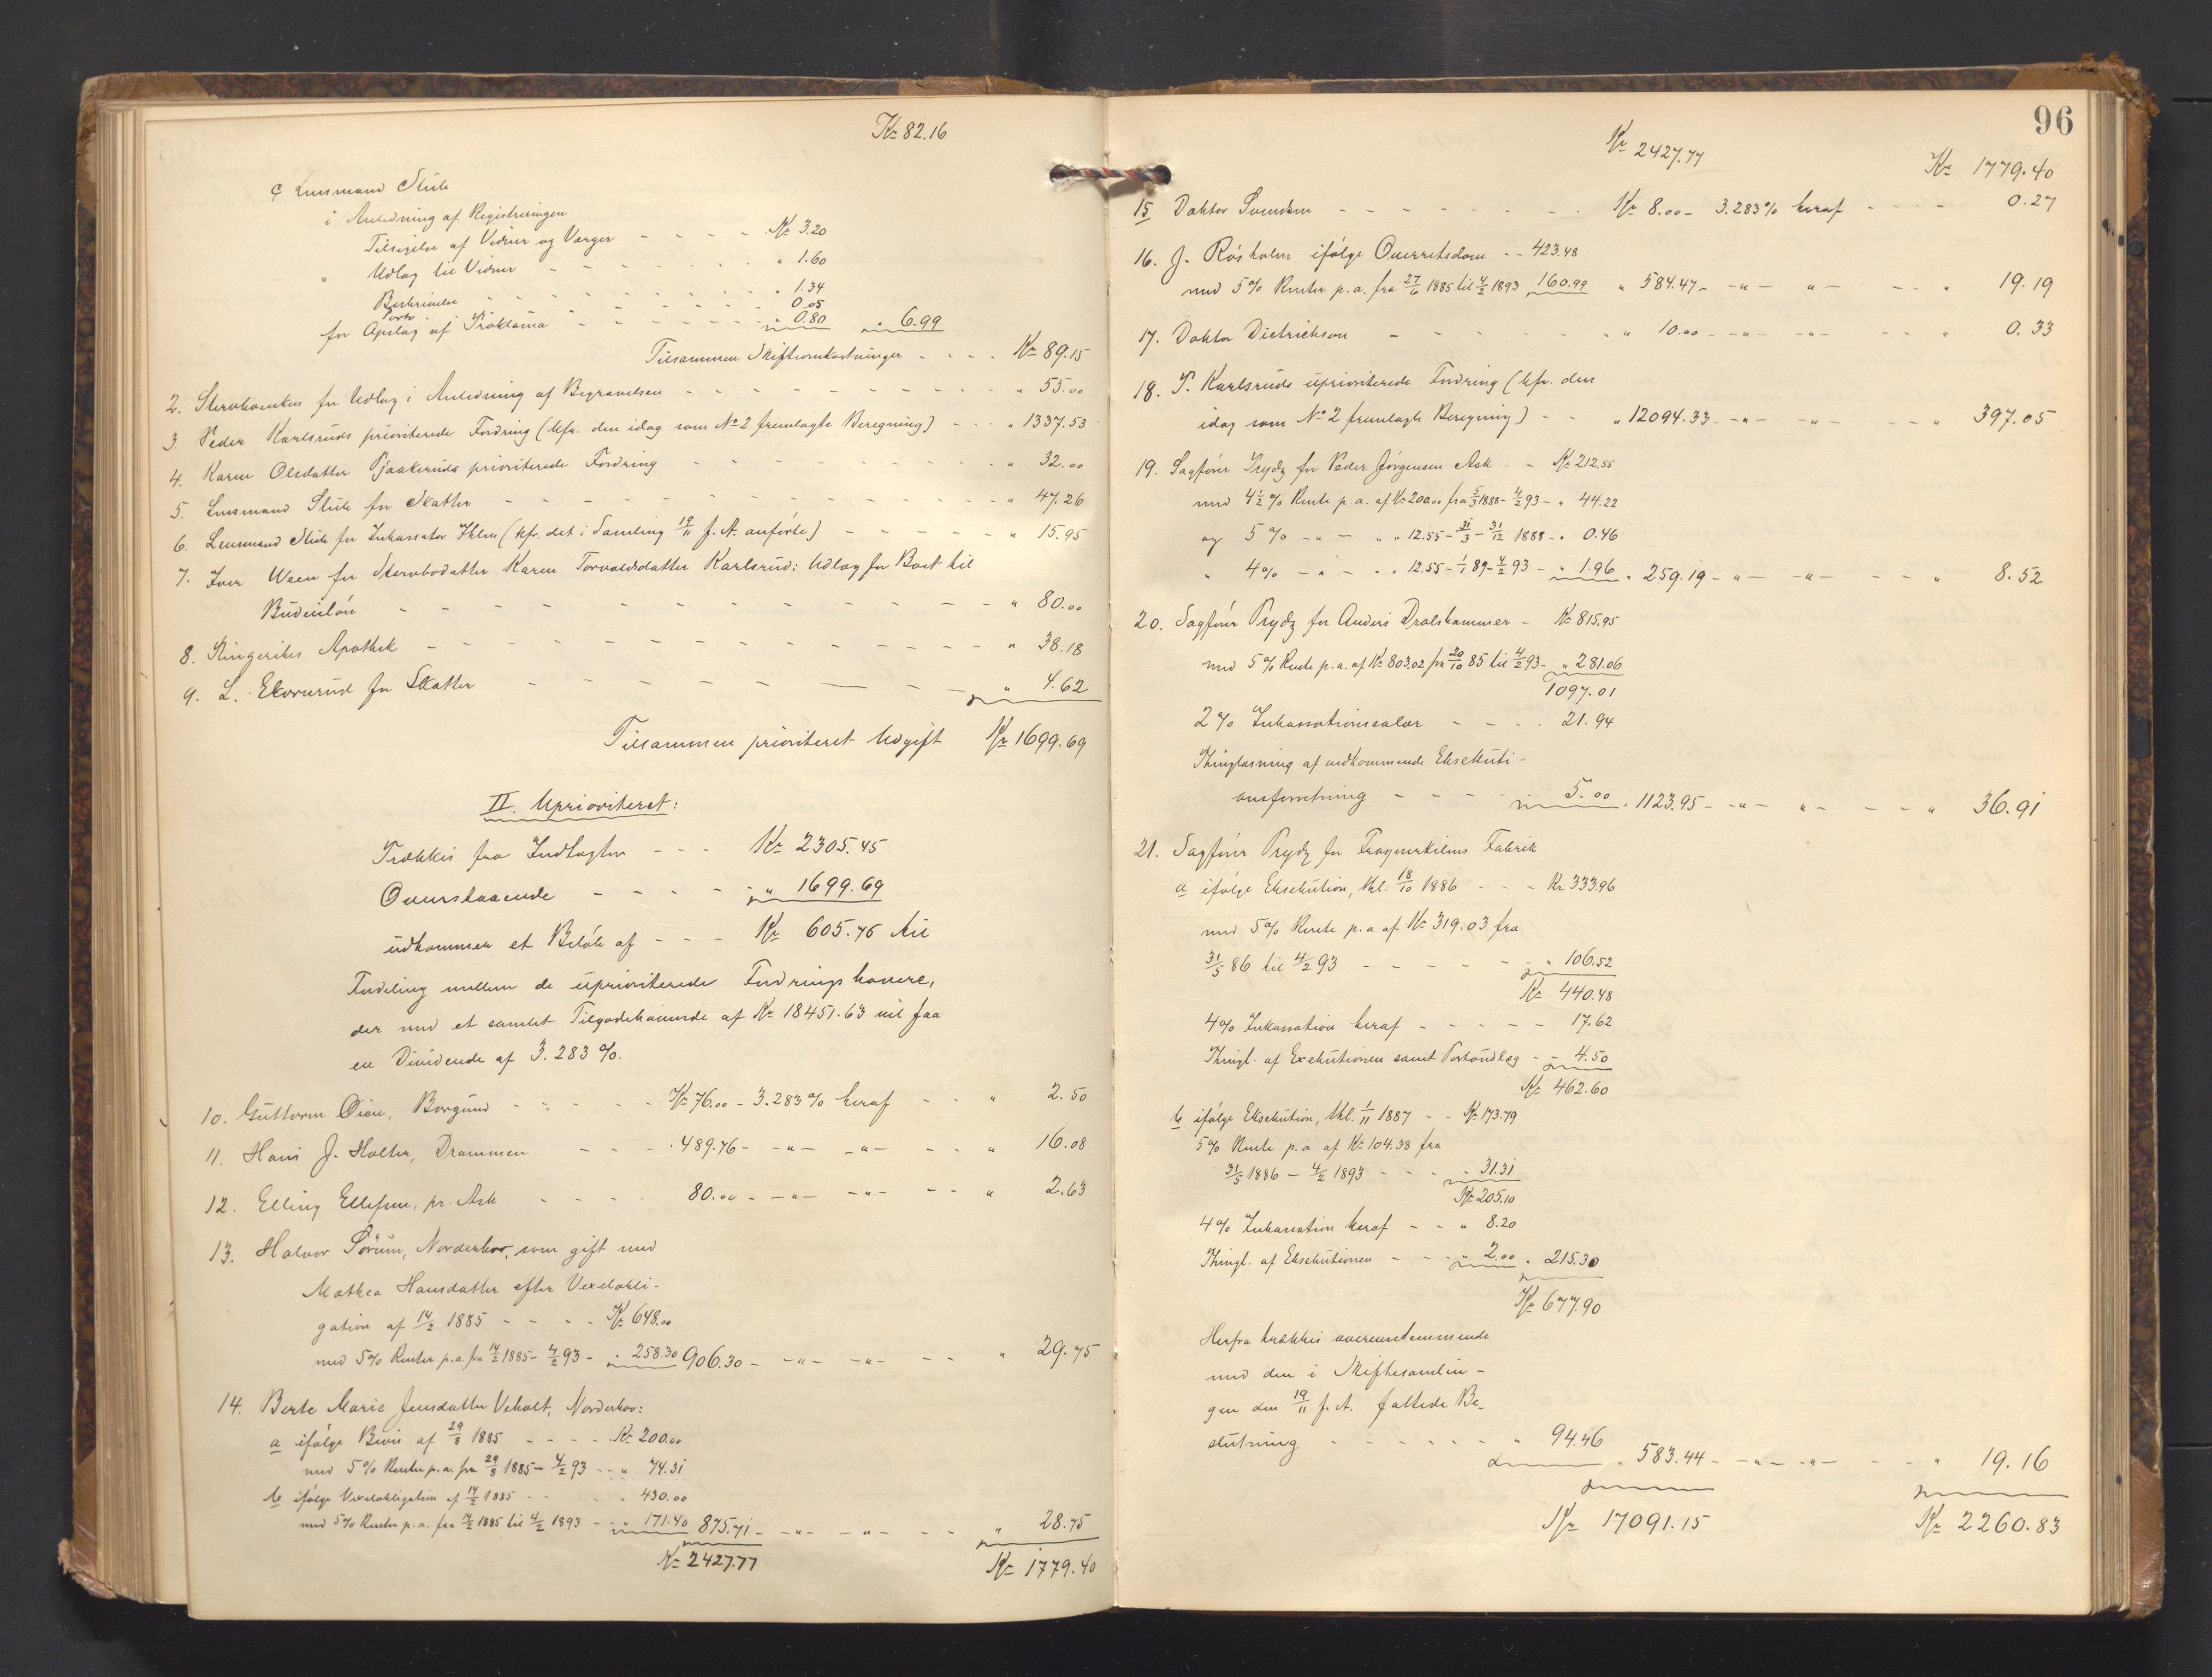 Kr 82.16
c Lensmand Stub
i Anledning af Registreringen
Tilsigelse af Vidner og Værger - - - - Kr 3.20
Udlag til Vidner - - - - - - " 1.60
Beskrivelse - - - - - - " 1.34
Porto - - - - - - 0.05
for Opslag af Proklama - - - - - " 0.80 " 6.99
Tilsammen Skifteomkostninger - - - - Kr 89.15
2. Stervboenken for Udlag i Anledning af Begravelsen - - - - - - " 55.00
3. Peder Karlsruds prioriterede Fordring (kfr. den idag som No 2 fremlagte Beregning) - - - " 1337.53
4. Karen Olsdatter Pjaakeruds prioriterede Fordring - - - - - - " 32.00
5. Lensmand Stub for Skatter - - - - - - " 47.26
6. Lensmand Stub for Inkassator Ihlen (kfr. det i Samling 19/11 f. A. anførte) - - - - - " 15.95
7. Iver Ween for Stervbodatter Karen Torvaldsdatter Karlsrud: Udlag for Boet til
Budeieløn - - - - - - " 80.00
8. Ringerikes Apothek - - - - - - " 38.18
9. L. Elvrumd for Skatter - - - - - - " 4.62
Tilsammen prioriteret Udgift Kr 1699.69
II. Uprioriteret:
Trækkes fra Indtægten - - - Kr 2305.45
Ovenstaaende - - - - - " 1699.69
udkommer et Beløb af - - - Kr 605.76 til
Fordeling mellem de uprioriterede Fordringshavere,
der med et samlet Tilgodehavende af Kr 18451.63 vil faa
en Dividende af 3.283 %.
10. Guttorm Øien, Borgund - - - - - Kr 76.00 - 3.283 % heraf - - " 2.50
11. Hans J. Holter, Drammen - - - . 489.76 - -"- -"- - - " 16.08
12. Elling Ellefsen, pr. Ask - - - - 80.00 - -"- -"- - - " 2.63
13. Halvor Sørum, Norderhov, som gift med
Mathea Hansdatter efter Vexelobli-
gation af 14/2 1885 - - - - Kr 648.00
med 5 % Renter p.a. fra 14/2 1885 - 4/2 93 - " 258.30 906.30 - -"- -"- - - " 29.75
14. Berte Marie Jensdatter Veholt, Norderhov:
a ifølge Bevis af 29/8 1885 - - - - Kr 200.00
med 5 % Renter p.a. fra 29/8 1885 - 4/2 93 - - " 74.31
b ifølge Vexelobligation af 14/2 1885 - - - " 430.00
med 5 % Renter p.a. fra 14/2 1885 til 4/2 1893 - - " 171.40 875.71 - -"- -"- - - " 28.75
Kr 2427.77 Kr 1779.40
96
Kr 2427.77 Kr 1779.40
15 Doktor Svendsen - - - - - - - Kr 8.00 - 3.283 % heraf - - - - 0.27
16. J. Røsholm ifølge Overretsdom - - 423.48
med 5 % Renter p.a. fra 27/6 1885 til 4/2 1893 160.99 " 584.47 - -"- "- - - " 19.19
17. Doktor Dietrichson - - - - - - " 10.00 - -"- -"- - - " 0.33
18. P. Karlsruds uprioriterede Fordring (kfr. den
idag som No 2 fremlagte Beregning) - - " 12094.33 - -"- -"- - - " 397.05
19. Sagfører Prydz for Peder Jørgensen Ask - - Kr 212.55
med 4½ % Rente p.a. af Kr 200.00 fra 5/3 1888 - 4/2 93 - " 44.22
og 5 % - " - " " 12.55 - 31/3 - 31/12 1888 - " 0.46
" 4 % - " - " " 12.55 - 1/1 89 - 4/2 93 - " 1.96 " 259.19 - "- -"- - - " 8.52
20. Sagfører Prydz for Anders Drolshammer - Kr 815.95
med 5 % Rente p.a. af Kr 803.02 fra 20/10 85 til 4/2 93 - " 281.06
1097.01
2 % Inkassationssalær - - - . 21.94
Thinglæsning af vedkommende Eksekuti-
onsforretning - - - - 5.00 . 1123.95 - -"- "- - - " 36.91
21. Sagfører Prydz for Fragnerkilens Fabrik
a ifølge Eksekution, thl. 18/10 1886 - - - Kr. 333.96
med 5 % Rente p.a. af Kr 319.03 fra
31/5 86 til 4/2 93 - - - - - " 106.52
Kr 440.48
4 % Inkassation heraf - - - - - 17.62
Thingl. af Exekutionen samt Portoudlæg - - 4.50
Kr 462.60
b ifølge Eksekution, thl. 1/11 1887 - - Kr 173.79
5 % Rente p.a. af Kr 104.38 fra
31/5 1886 - 4/2 1893 - - - . 31.31
Kr 205.10
4 % Inkassation heraf - - " 8.20
Thingl. af Eksekutionen - - - " 2.00 . 215.30
Kr 677.90
Herfra trækkes overensstemmende
med den i Skiftesamlin-
gen den 19/11 f. A. fattede Be-
slutning - - - - - - " 94.46
. 583.44 - -"- -"- - - " 19.16
Kr 17091.15 Kr 2260.83